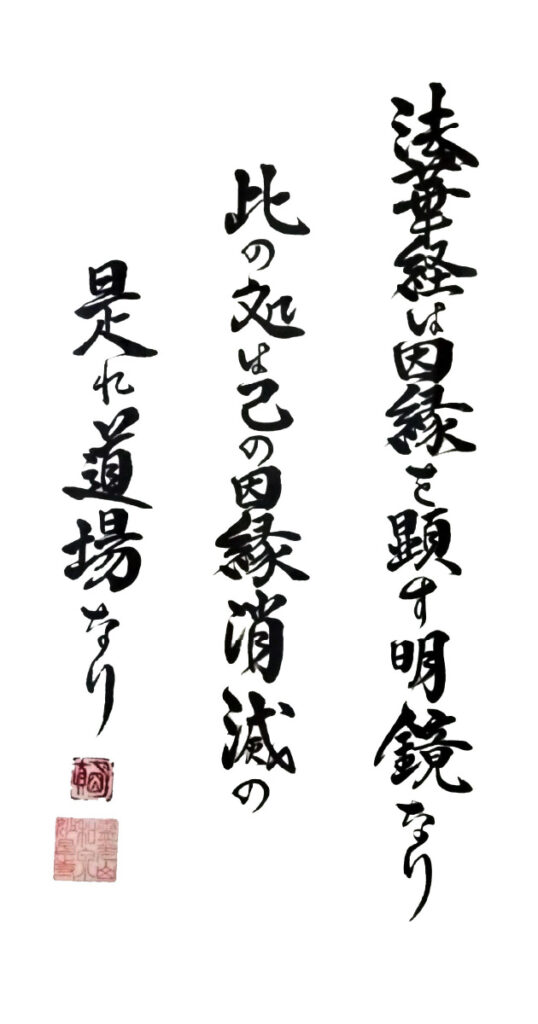 法華経は因縁を顕す明鏡なり
此の処は己の因縁消滅の
是れ道場なり